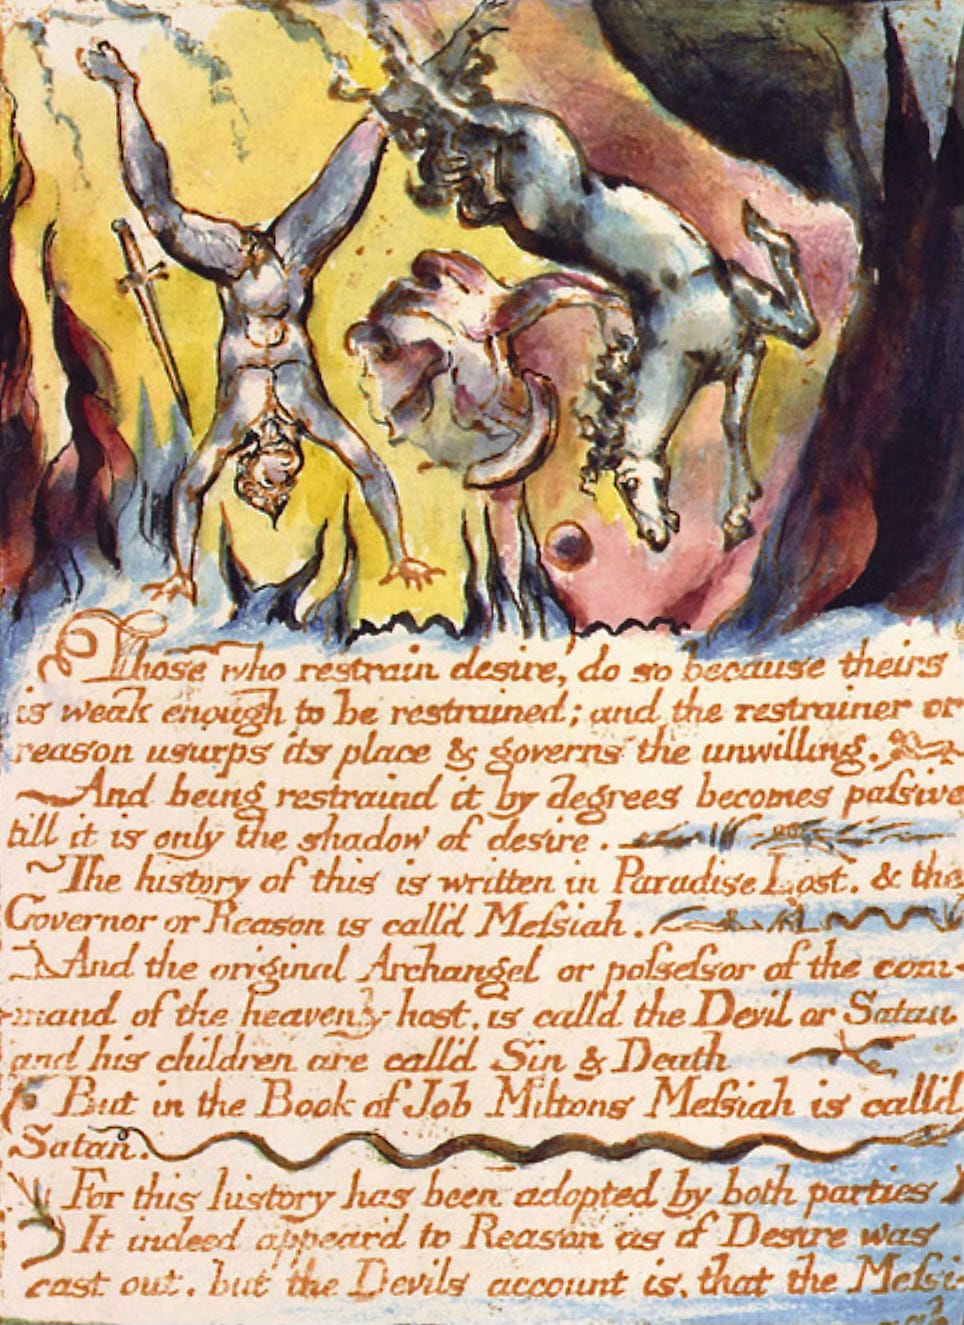 Those who restrain desire, do so because theirs
is weak enough to be restrained; and the restrainer or
reason usurps its place & governs the unwilling.
And being restraind it by degrees becomes paſsive
till it is only the shadow of desire.
The history of this is written in Paradise Lost. & the
Governor or Reason is call'd Meſsiah.
And the original Archangel or poſseſsor of the com-
-mand of the heavenly host. is calld the Devil or Satan
and his children are call'd Sin & Death
But in the Book of Job Miltons Meſsiah is call'd
Satan.
For this history has been adopted by both parties
It indeed appear'd to Reason as if Desire was
cast out. but the Devils account is. that the Meſsi-